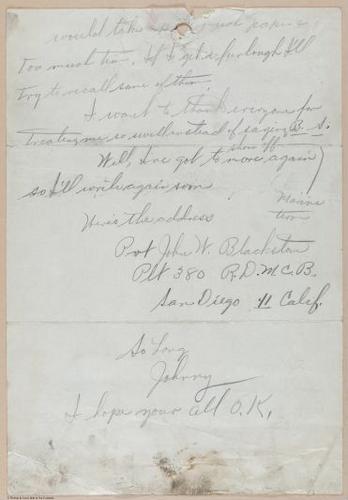 would take
too much time. If I get a furlough I'll
try to recall some of them.
I want to thank everyone for
treating me so swell instead of saying B. S.
show off
Well, I've got to move again
so I'll write again soon
Marine
term
Here's the address
Pvt John W. Blackston
Plt 380 R.D.M.C.B.
San Diego 41 Calif.
So Long
Johnny
I hope your all O.K.